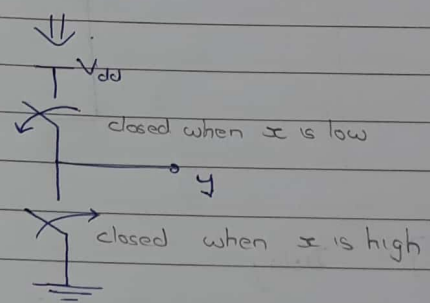 Vdd
closed when x is low
y
closed when x is high